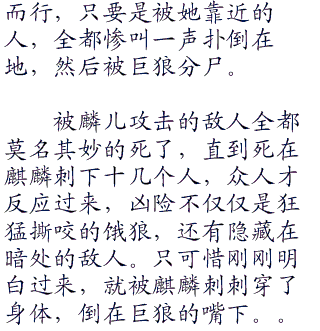 而行，只要是被她靠近的
人，全都惨叫一声扑倒在
地，然后被巨狼分尸。
被麟儿攻击的敌人全都
莫名其妙的死了，直到死在
麒麟刺下十几个人，众人才
反应过来，凶险不仅仅是狂
猛撕咬的饿狼，还有隐藏在
暗处的敌人。只可惜刚刚明
白过来，就被麒麟刺刺穿了
身体，倒在巨狼的嘴下。。